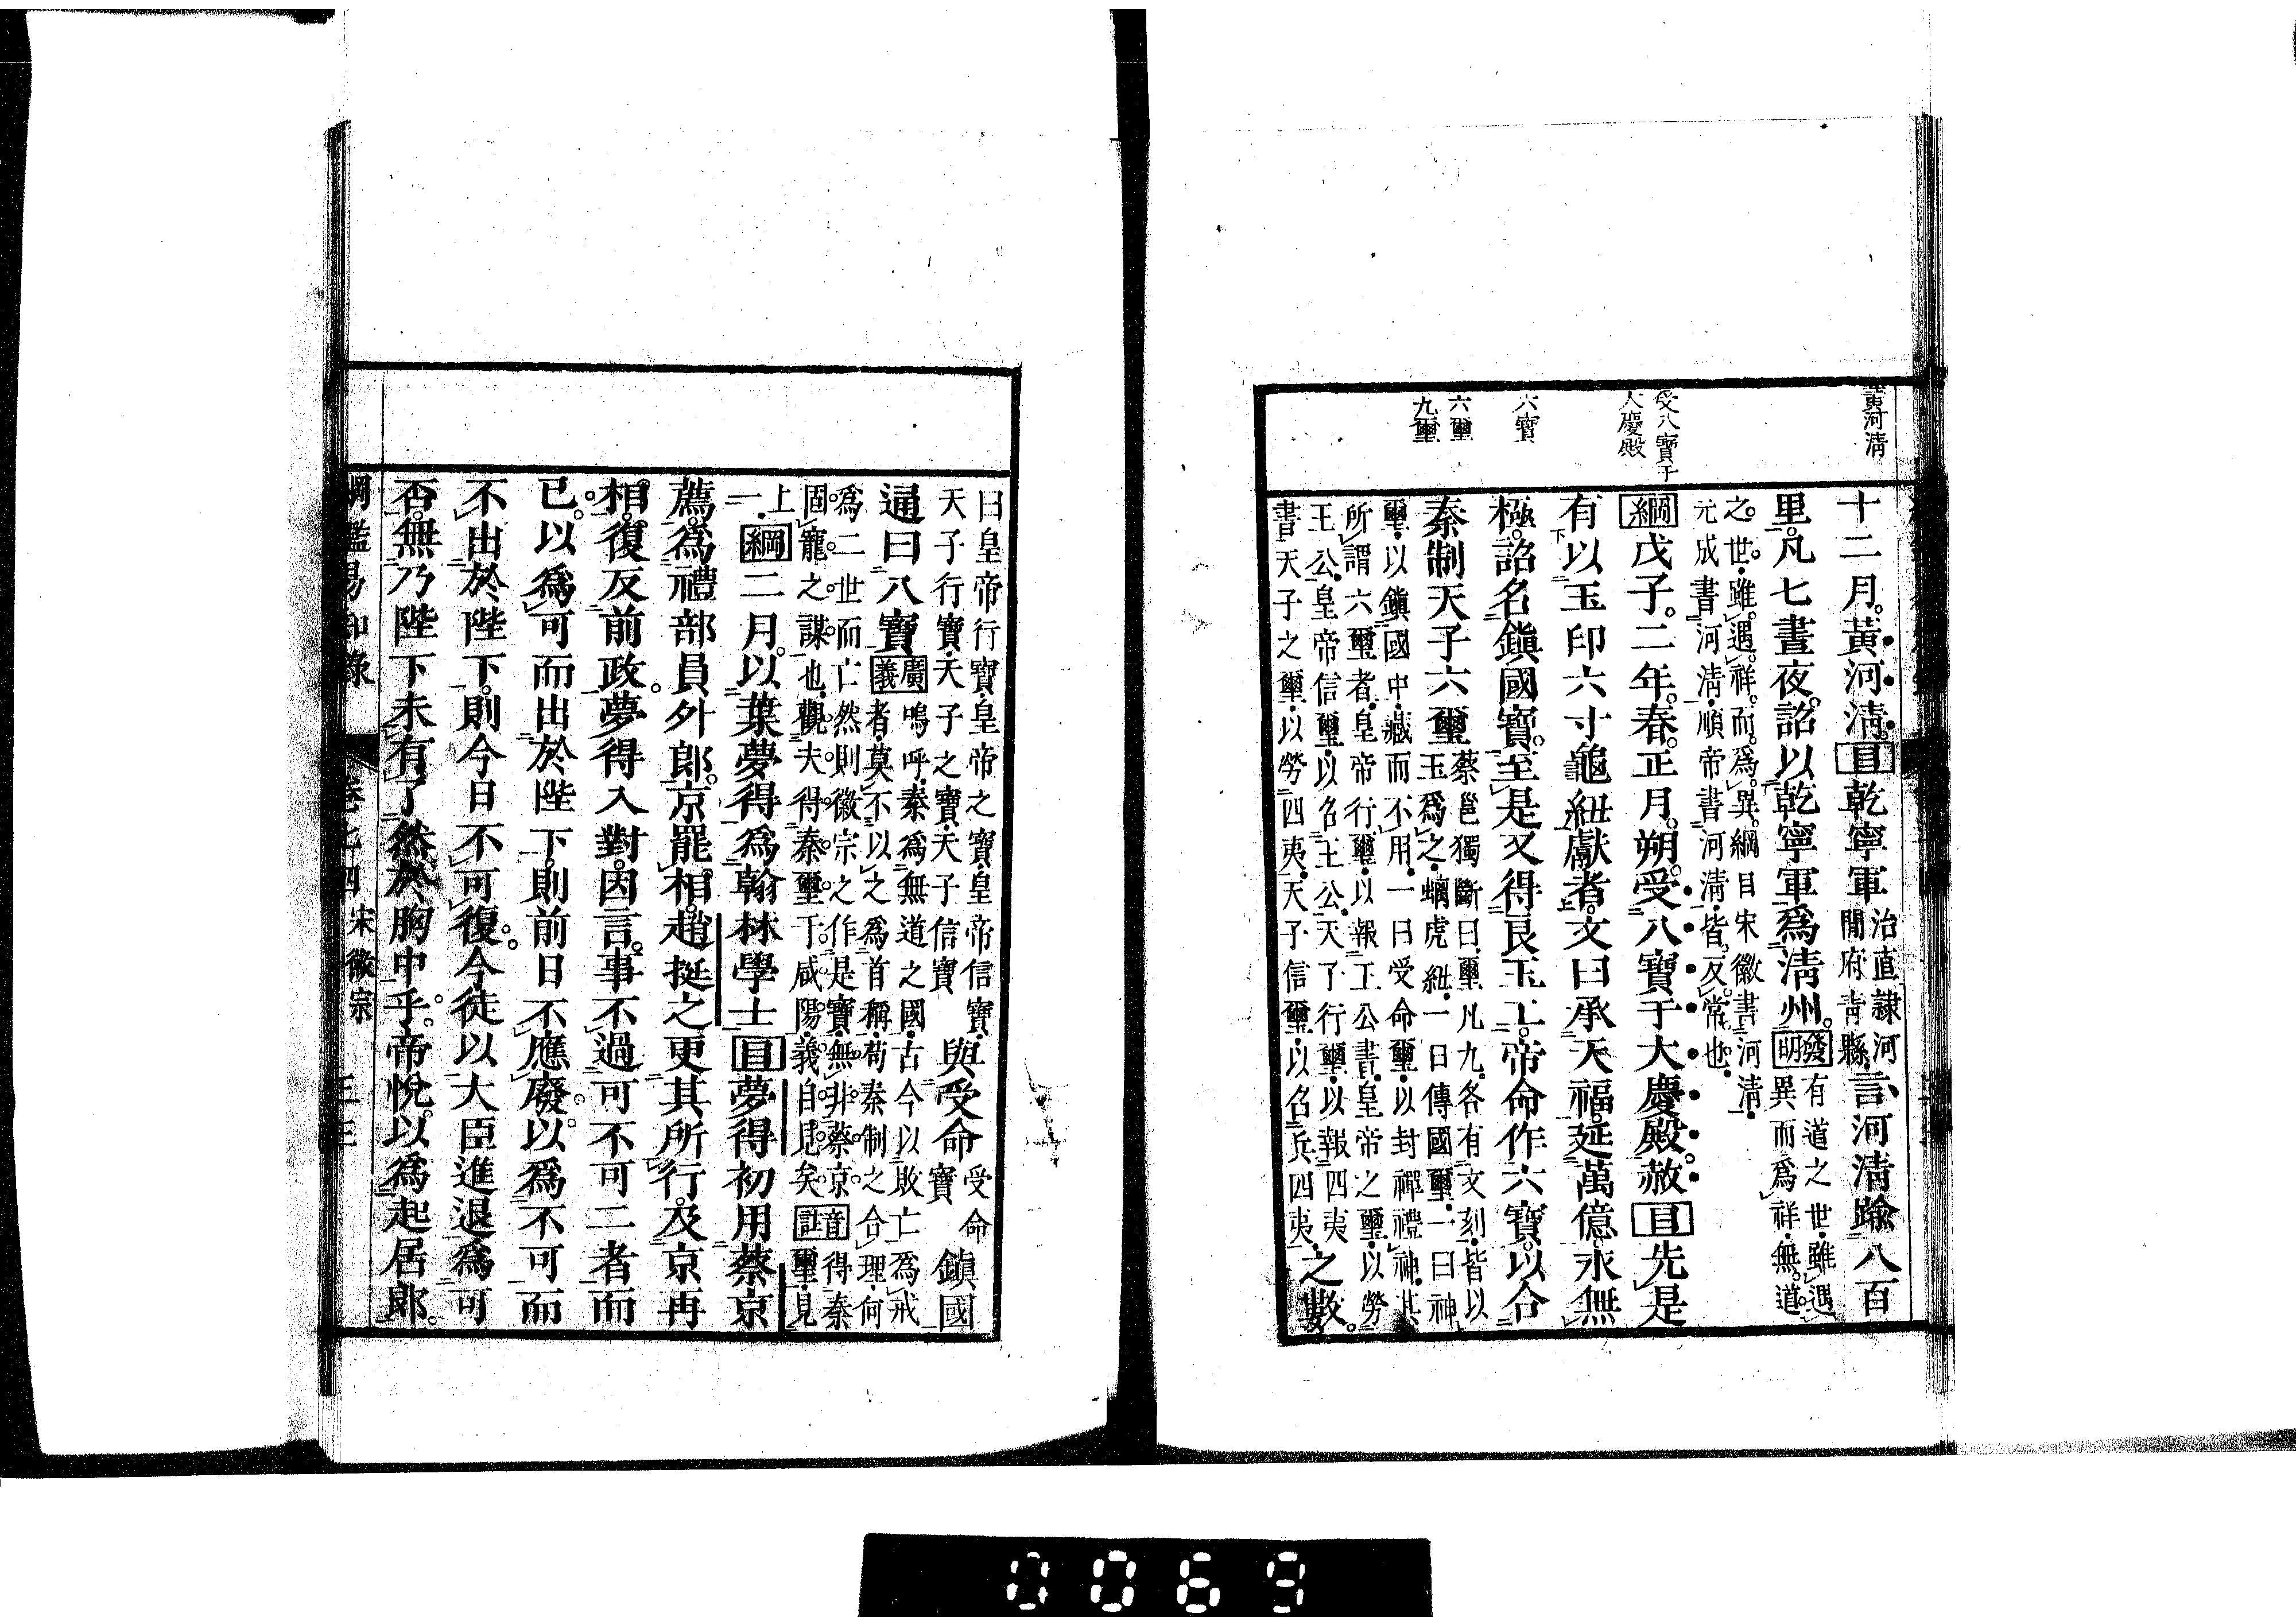 黃河清
受八寶于
大慶殿
六寶
六璽
九璽
十二月。黃河清。目乾寧軍
治直隸河
間府靑縣
言河淸踰八百
里。凡七晝夜。詔以乾寧軍爲淸州。
發明
有道之世雖遇
異而爲祥無道
之世雖遇祥而爲異綱目宋徽書河淸
元成書河淸順帝書河淸皆反常也
綱戊子。二年。春。正月。朔。受八寶于大慶殿。赦目先是
有以玉印六寸龜紐獻者。文曰承天福延萬億永無
極。詔名鎭國寶。至是又得良玉工。帝命作六寶。以合
秦制天子六璽
蔡邕獨斷曰璽凡九各有文刻皆以
玉爲之螭虎紐一曰傳國璽一曰神
璽以鎭國中藏而不用一曰受命璽以封禪禮神其
所謂六璽者皇帝行璽以報王公書皇帝之璽以勞
王公皇帝信璽以名王公天子行璽以報四夷
書天子之璽以勞四夷天子信璽以名兵四夷
之數。
曰皇帝行寶皇帝之寶皇帝信寶
天子行寶天子之寶天子信寶
與受命
受命
寶
鎭國
通曰八寶
廣義
嗚呼秦爲無道之國古今以敗亡爲戒
者莫不以之爲首稱苟秦制之合理何
爲二世而亡然則徽宗之作是寶無非蔡京
固寵之謀也觀夫得秦璽于咸陽義自見矣
音註
得秦
璽見
上
一
綱二月。以葉夢得爲翰林學士目夢得初用蔡京
薦。爲禮部員外郎。京罷相。趙挺之更其所行。及京再
相。復反前政。夢得入對。因言。事不過可不可二者而
已。以爲可而出於陛下。則前日不應廢。以爲不可而
不出於陛下。則今日不可復。今徒以大臣進退爲可
否。無乃陛下未有了然於胸中乎。帝悅。以爲起居郎。
綱鑑易知錄 卷七四 宋徽宗 三三
0069